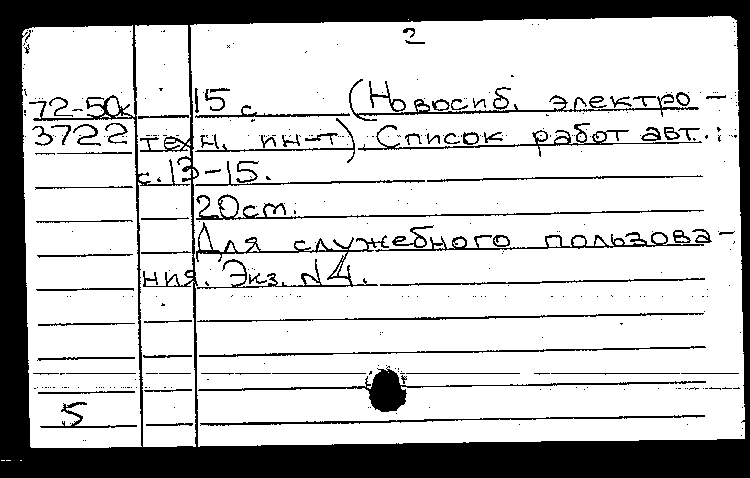 2
72-50к 15 с. (Новосиб. электро-
3722 техн. ин-т). Список работ авт.:
с. 13-15.
20 см.
Для служебного пользова-
ния. Экз. N4.
5